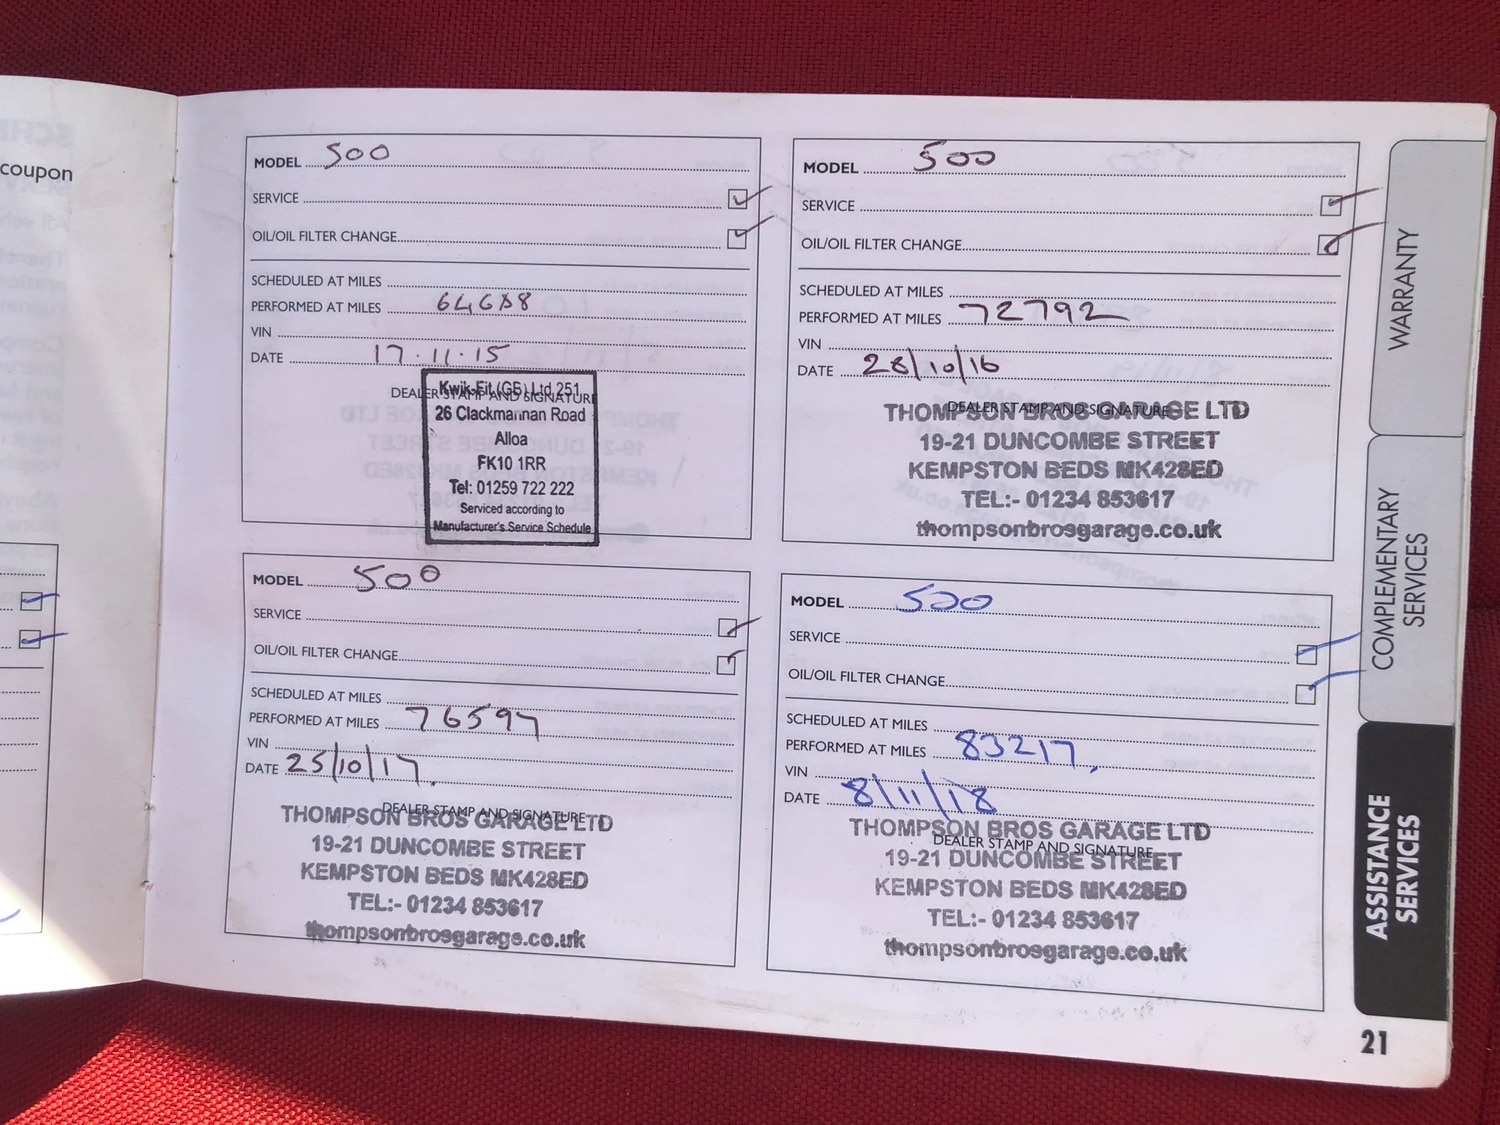 coupon
MODEL 500
SERVICE
OIL/OIL FILTER CHANGE
SCHEDULED AT MILES
PERFORMED AT MILES
VIN
DATE 17.11.15
DEALER STAMP AND SIGNATURE
Kwik-Fit (GB) Ltd 251
26 Clackmannan Road
Alloa
FK10 1RR
Tel: 01259 722 222
Serviced according to
Manufacturer's Service Schedule
MODEL 500
SERVICE
OIL/OIL FILTER CHANGE
SCHEDULED AT MILES
PERFORMED AT MILES 72792
VIN
DATE 28/10/16
DEALER STAMP AND SIGNATURE
THOMPSON BROS GARAGE LTD
19-21 DUNCOMBE STREET
KEMPSTON BEDS MK428ED
TEL:- 01234 853617
thompsonbrosgarage.co.uk
MODEL 500
SERVICE
OIL/OIL FILTER CHANGE
SCHEDULED AT MILES
PERFORMED AT MILES 76597
VIN
DATE 25/10/17.
DEALER STAMP AND SIGNATURE
THOMPSON BROS GARAGE LTD
19-21 DUNCOMBE STREET
KEMPSTON BEDS MK428ED
TEL:- 01234 853617
thompsonbrosgarage.co.uk
MODEL 500
SERVICE
OIL/OIL FILTER CHANGE
SCHEDULED AT MILES
PERFORMED AT MILES 83217.
VIN
DATE 8/11/18
DEALER STAMP AND SIGNATURE
THOMPSON BROS GARAGE LTD
19-21 DUNCOMBE STREET
KEMPSTON BEDS MK428ED
TEL:- 01234 853617
thompsonbrosgarage.co.uk
WARRANTY
COMPLEMENTARY
SERVICES
ASSISTANCE
SERVICES
21